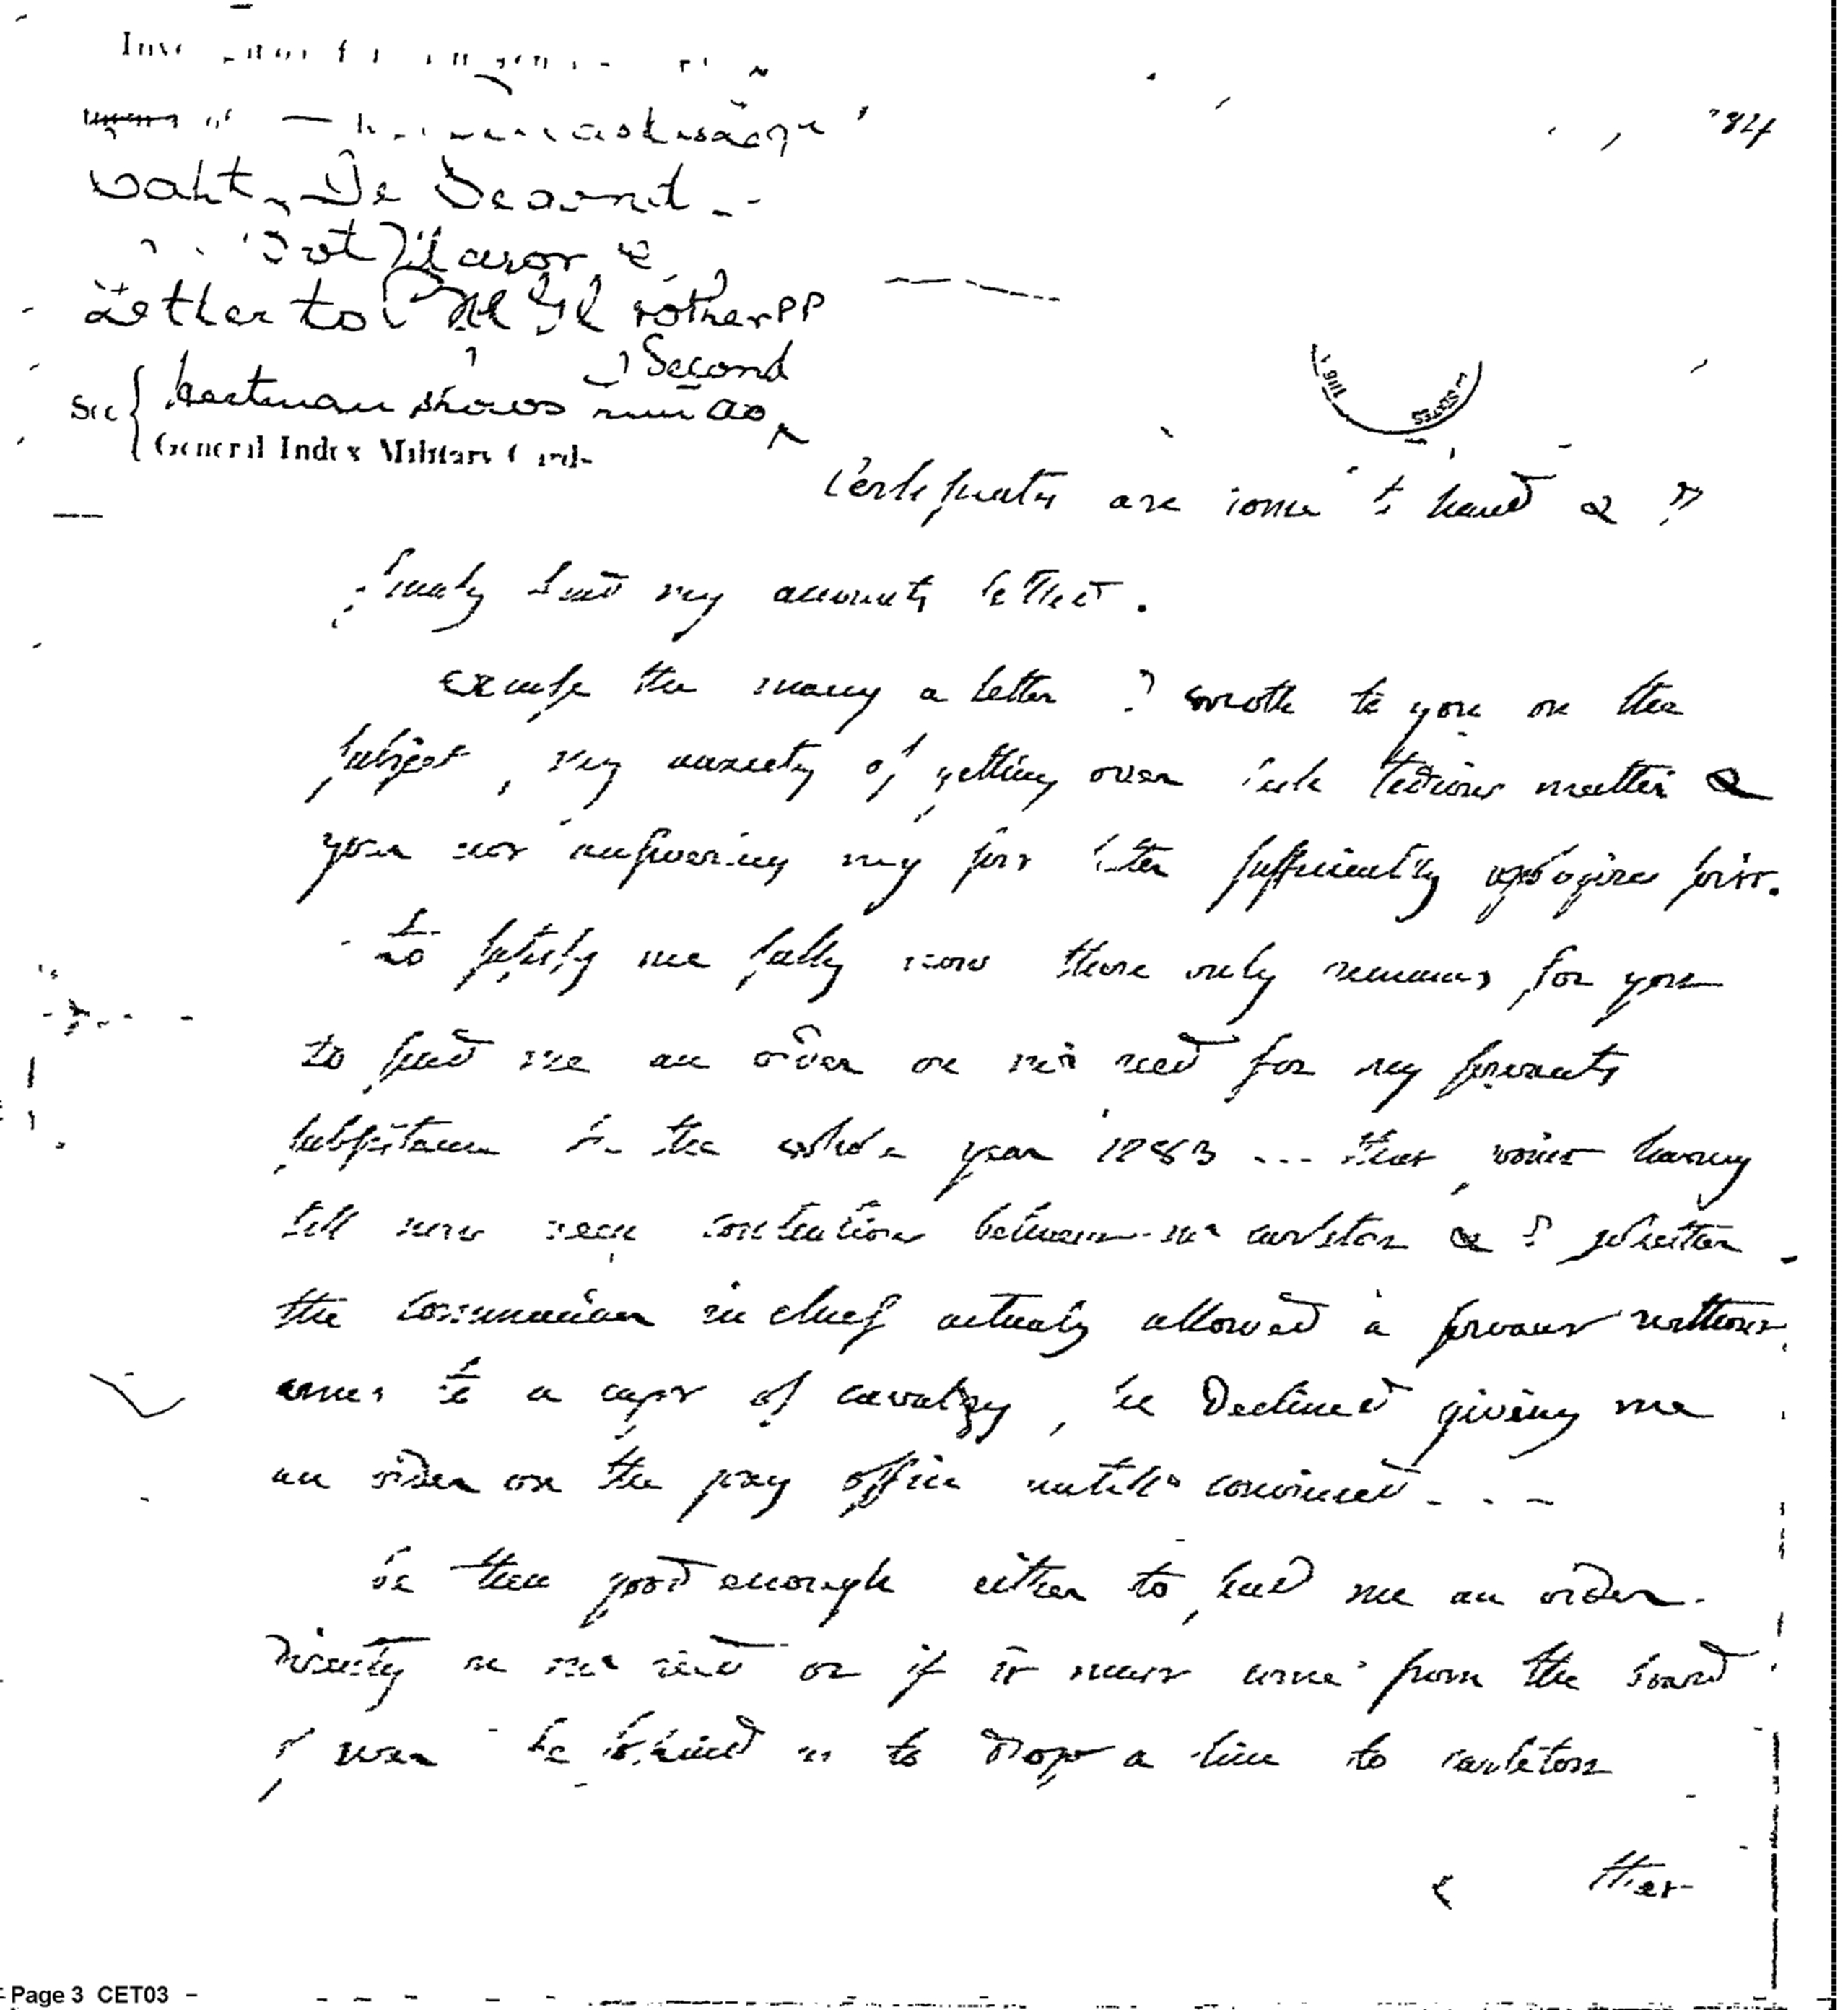 84
Letter to
Second
See
General Index Military Card
Certificates are come to hand & I
finaly find my accounts settled.
excuse the many a letter I wrote to you on the
subject, my anxiety of getting over such tedious matter &
your not answering my first letter sufficiently apologises for it.
to satisfy me fully now there only remains for you
to send me an order on mr reed for my servants
subsistance for the whole year 1783 ... that point having
till now been contention between mr carleton & I whether
the Commander in chief actualy allowed a servant without
arms to a capt of cavalry, he Declined giving me
an order on the pay office untill convinced - - -
be then good enough either to send me an order
Directly on mr reed or if it must come from the board
of war be so kind as to Drop a line to carleton
that
Page 3 CET03